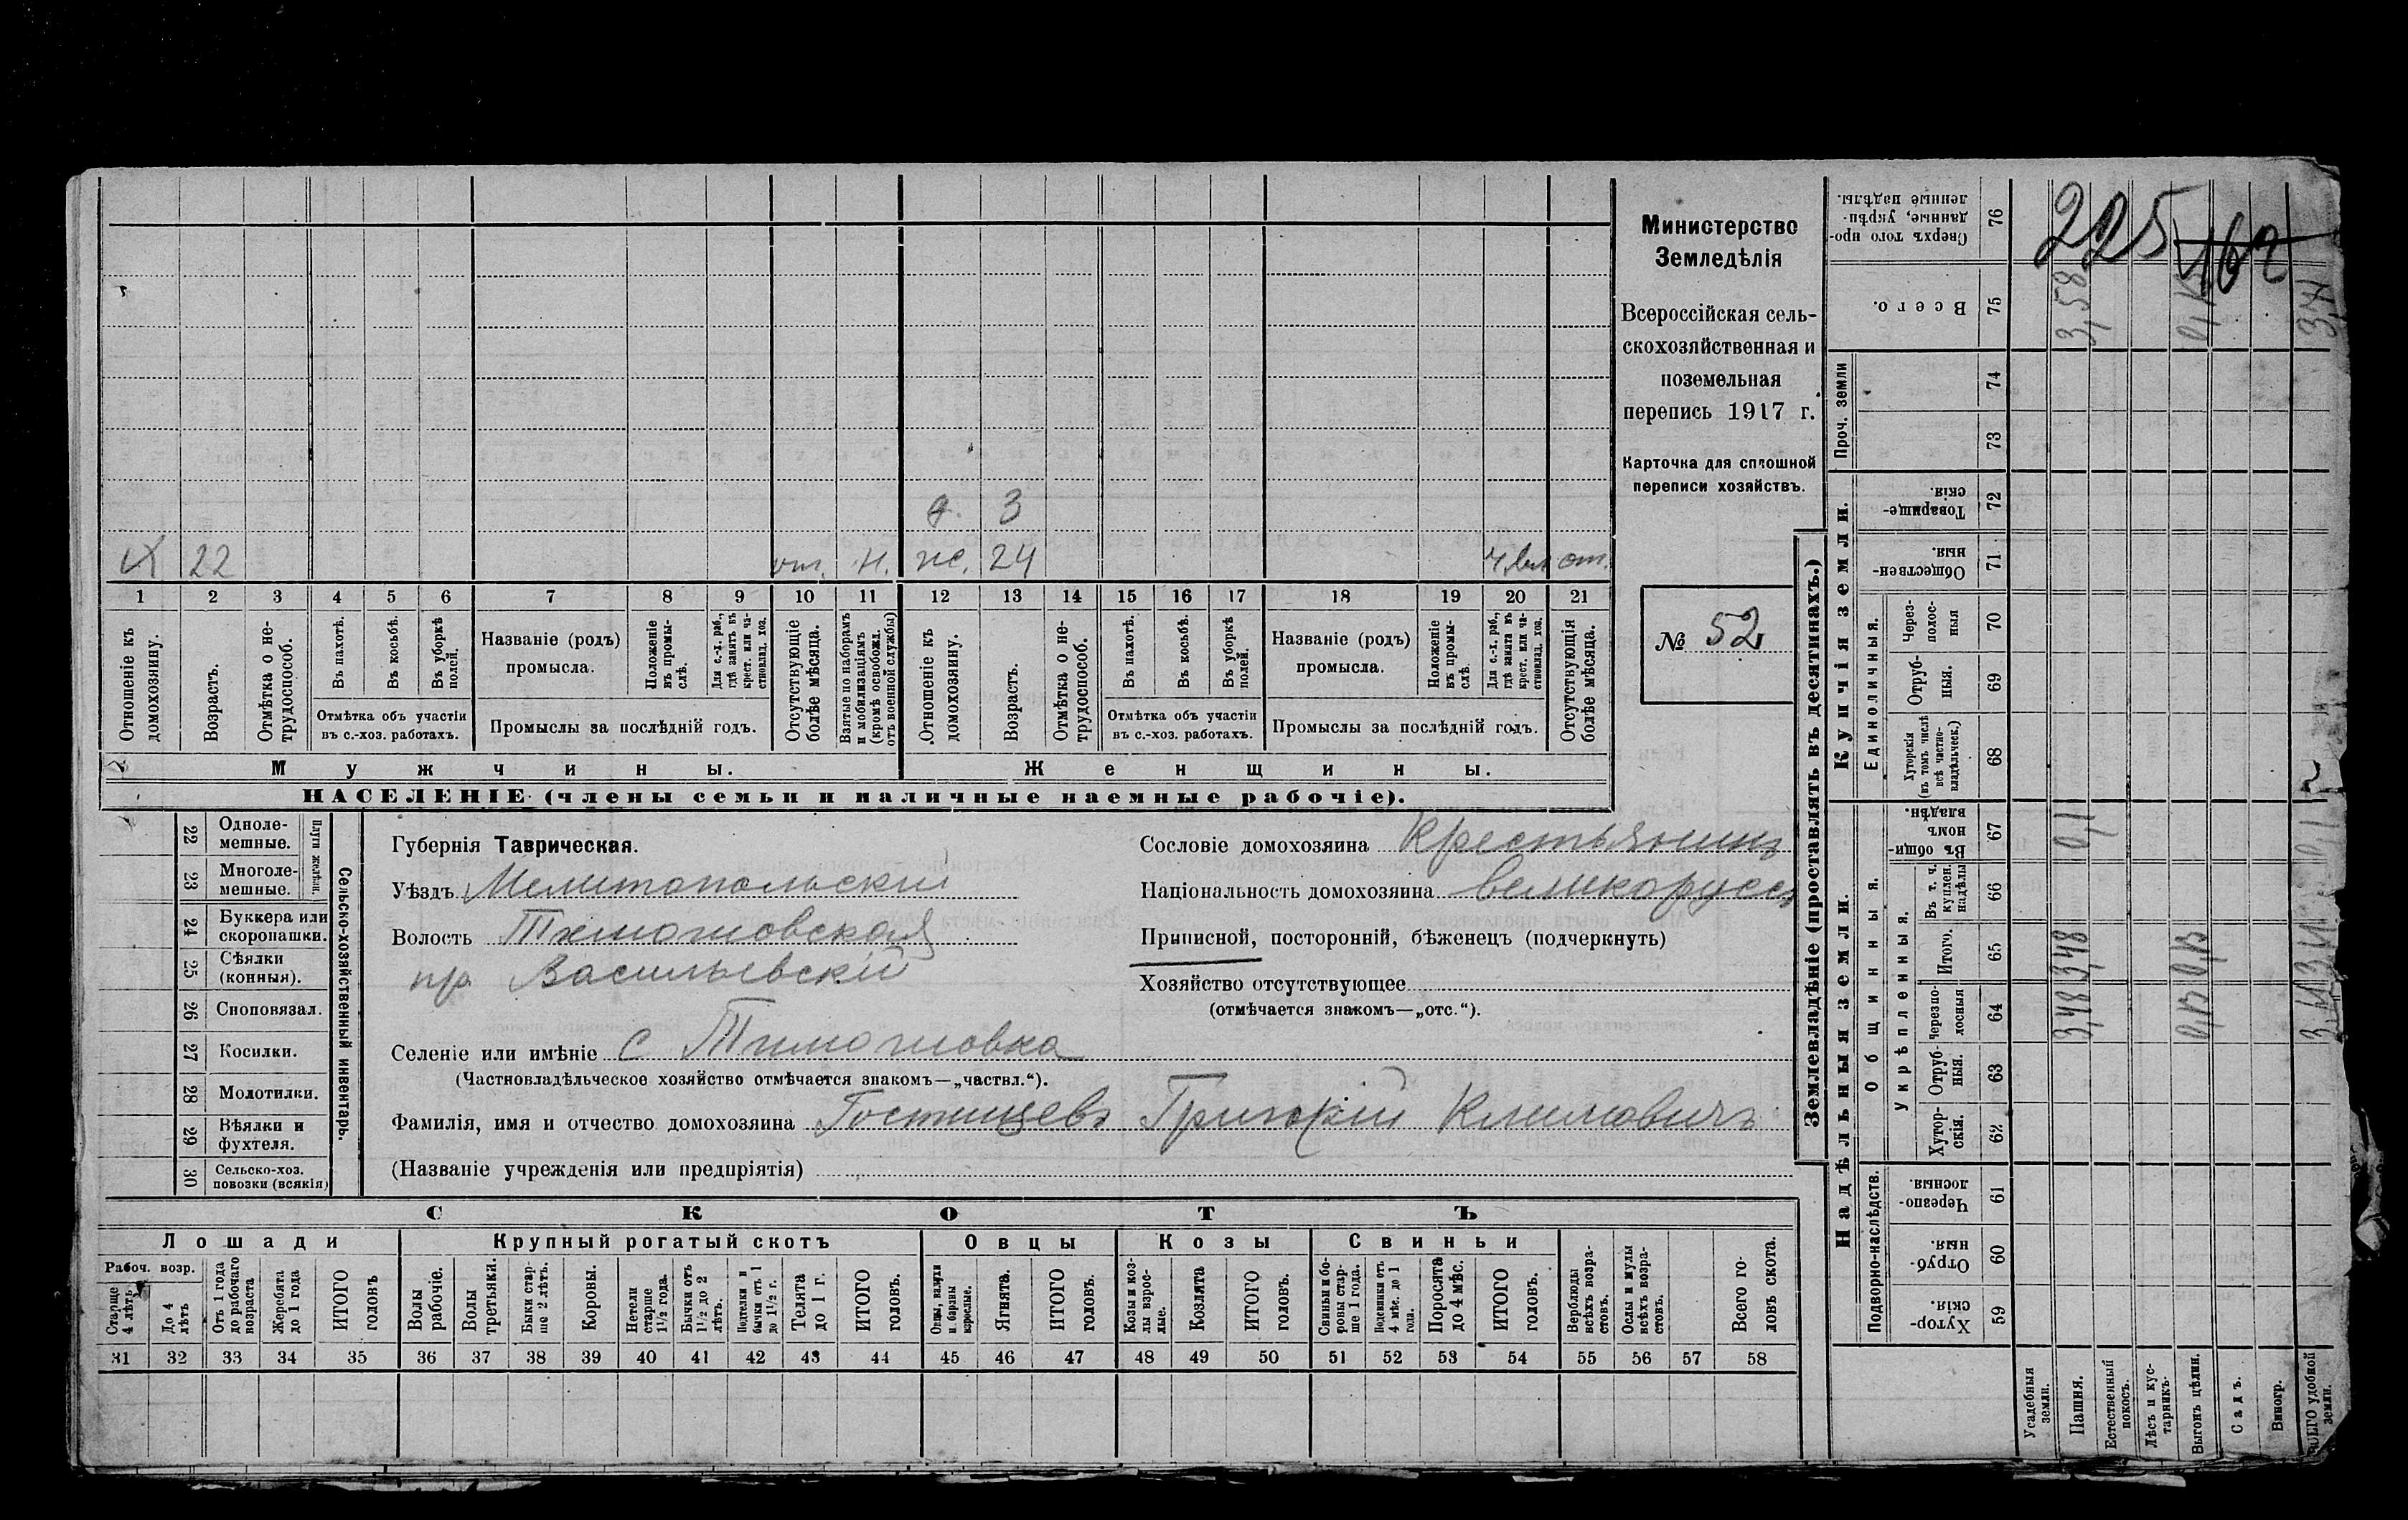 Министерство
Земледѣлія
Всероссійская сель-
скохозяйственная и
поземельная
перепись 1917 г.
Карточка для сплошной
переписи хозяйствъ.
№ 52
д. 3
х 22 от. н. ж. 24 от.
1 2 3 4 5 6 7 8 9 10 11 12 13 14 15 16 17 18 19 20 21
Отношеніе къ домохозяину.
Возрастъ.
Отмѣтка о не-трудоспособ.
Въ пахотѣ.
Въ косьбѣ.
Въ уборкѣ полей.
Отмѣтка объ участіи
въ с.-хоз. работахъ.
Названіе (родъ)
промысла.
Положеніе въ промы-слѣ.
Для с.-х. раб., гдѣ занятъ въ крест. или ча-стновлад. хоз.
Промыслы за послѣдній годъ.
Отсутствующіе болѣе мѣсяца.
Взятые по наборамъ и мобилизаціямъ (кромѣ освобожд. отъ военной службы)
Отношеніе къ домохозяину.
Возрастъ.
Отмѣтка о не-трудоспособ.
Въ пахотѣ.
Въ косьбѣ.
Въ уборкѣ полей.
Отмѣтка объ участіи
въ с.-хоз. работахъ.
Названіе (родъ)
промысла.
Положеніе въ промы-слѣ.
Для с.-х. раб., гдѣ занята въ крест. или ча-стновлад. хоз.
Промыслы за послѣдній годъ.
Отсутствующія болѣе мѣсяца.
Мужчины. Женщины.
НАСЕЛЕНІЕ (члены семьи и наличные наемные рабочіе).
Сельско-хозяйственный инвентарь.
Плуги желѣзн.
22 Одноле-мешные.
23 Многоле-мешные.
24 Буккера или скоропашки.
25 Сѣялки (конныя).
26 Сноповязал.
27 Косилки.
28 Молотилки.
29 Вѣялки и фухтеля.
30 Сельско-хоз. повозки (всякія)
Губернія Таврическая.
Уѣздъ Мелитопольскій
Волость Тимошовская
пр. Васильевскій
Селеніе или имѣніе с Тимошовка
(Частновладѣльческое хозяйство отмѣчается знакомъ—„частвл.“).
Фамилія, имя и отчество домохозяина Гостищевъ Климовичъ
(Названіе учрежденія или предпріятія)
Сословіе домохозяина Крестьянинъ
Національность домохозяина великоруссъ
Приписной, посторонній, бѣженецъ (подчеркнуть)
Хозяйство отсутствующее
(отмѣчается знакомъ—„отс.“).
СКОТЪ
Лошади
Крупный рогатый скотъ
Овцы
Козы
Свиньи
Рабоч. возр.
Старше 4 лѣтъ
До 4 лѣтъ
Отъ 1 года до рабочаго возраста
Жеребята до 1 года
ИТОГО головъ
Волы рабочіе.
Волы третьяки.
Быки стар-ше 2 лѣтъ.
Коровы.
Нетели старше 1½ года.
Бычки отъ 1½ до 2 лѣтъ.
Подтелки и бычки отъ 1 до 1½ г.
Телята до 1 г.
ИТОГО головъ.
Овцы, валухи и бараны взрослые.
Ягнята.
ИТОГО головъ.
Козы и коз-лы взрос-лые.
Козлята
ИТОГО головъ.
Свиньи и бо-ровы стар-ше 1 года.
Подсвинки отъ 4 мѣс. до 1 года.
Поросята до 4 мѣс.
ИТОГО головъ.
Верблюды всѣхъ возра-стовъ.
Ослы и мулы всѣхъ возра-стовъ.
Всего го-ловъ скота.
31 32 33 34 35 36 37 38 39 40 41 42 43 44 45 46 47 48 49 50 51 52 53 54 55 56 57 58
Землевладѣніе (проставлять въ десятинахъ.)
Надѣльныя земли.
Купчія земли.
Проч. земли
Подворно-наслѣдств.
Общинныя.
Укрѣпленныя.
Единоличныя.
Сверхъ того про-данные, укрѣп-ленные надѣлы. 76 225 162
Всего. 75 3,58
74
73
Товарище-скія. 72
Обществен-ныя. 71
Через-полос-ныя 70
Отруб-ныя. 69
Хуторскія (въ томъ числѣ всѣ частно-владѣльческ.) 68
Въ общин-номъ владѣн. 67 0,1
Въ т. ч. куплен. надѣлы 66
Итого. 65 3,48
Черезпо-лосныя 64 3,48
Отруб-ныя. 63
Хутор-скія. 62
Черезпо-лосныя. 61
Отруб-ныя. 60
Хутор-скія. 59
Усадебныя земли.
Пашня.
Естественный покосъ.
Лѣсъ и кус-тарникъ.
Выгонъ цѣлин.
Садъ.
Виногр.
удобной земли.